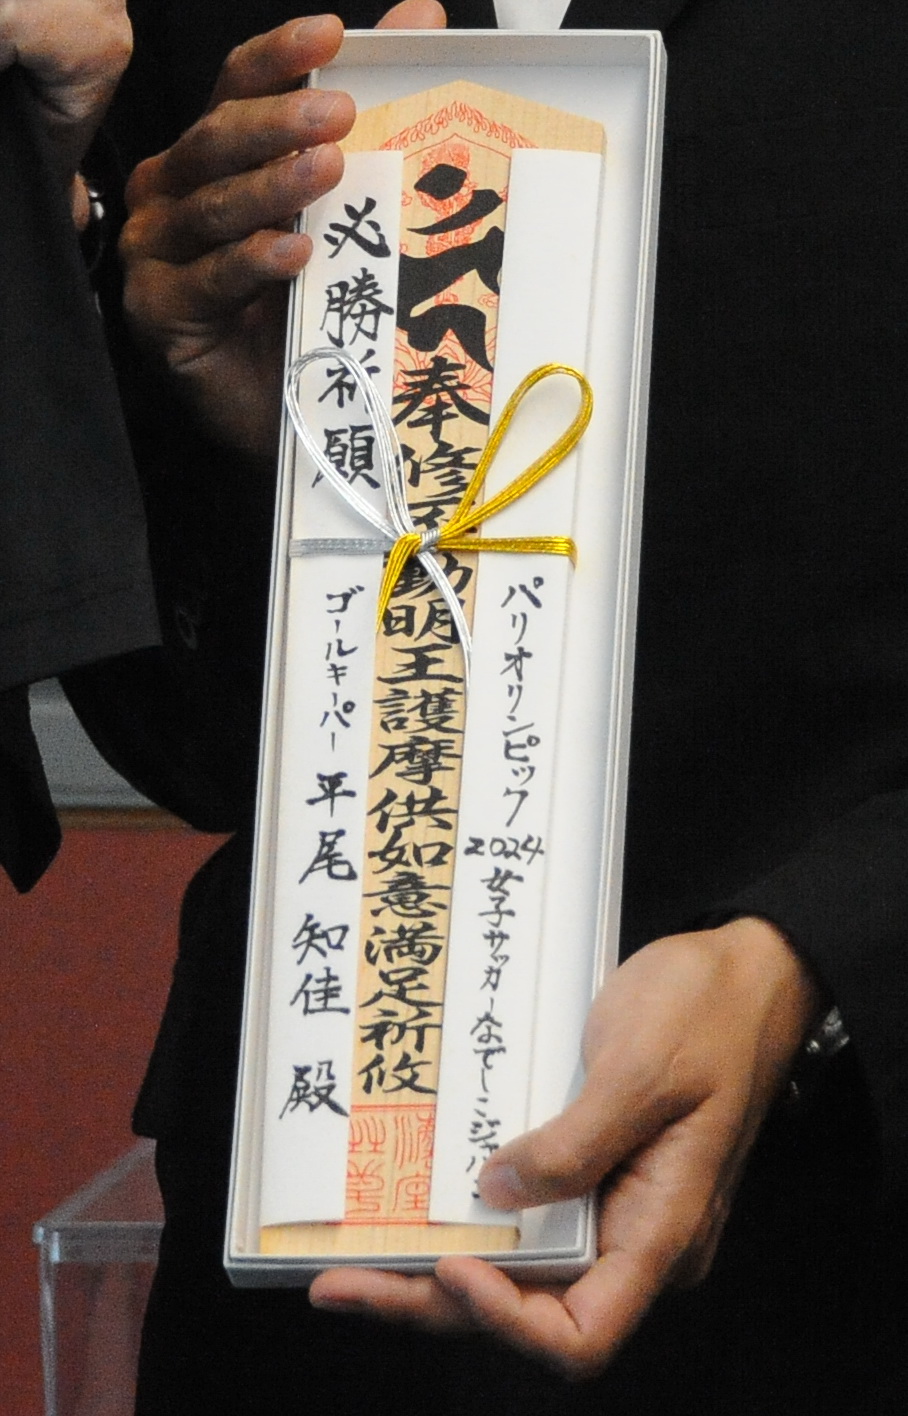 パリオリンピック2024女子サッカーなでしこジャパン
奉修不動明王護摩供如意満足祈攸
必勝祈願
ゴールキーパー 平尾 知佳 殿